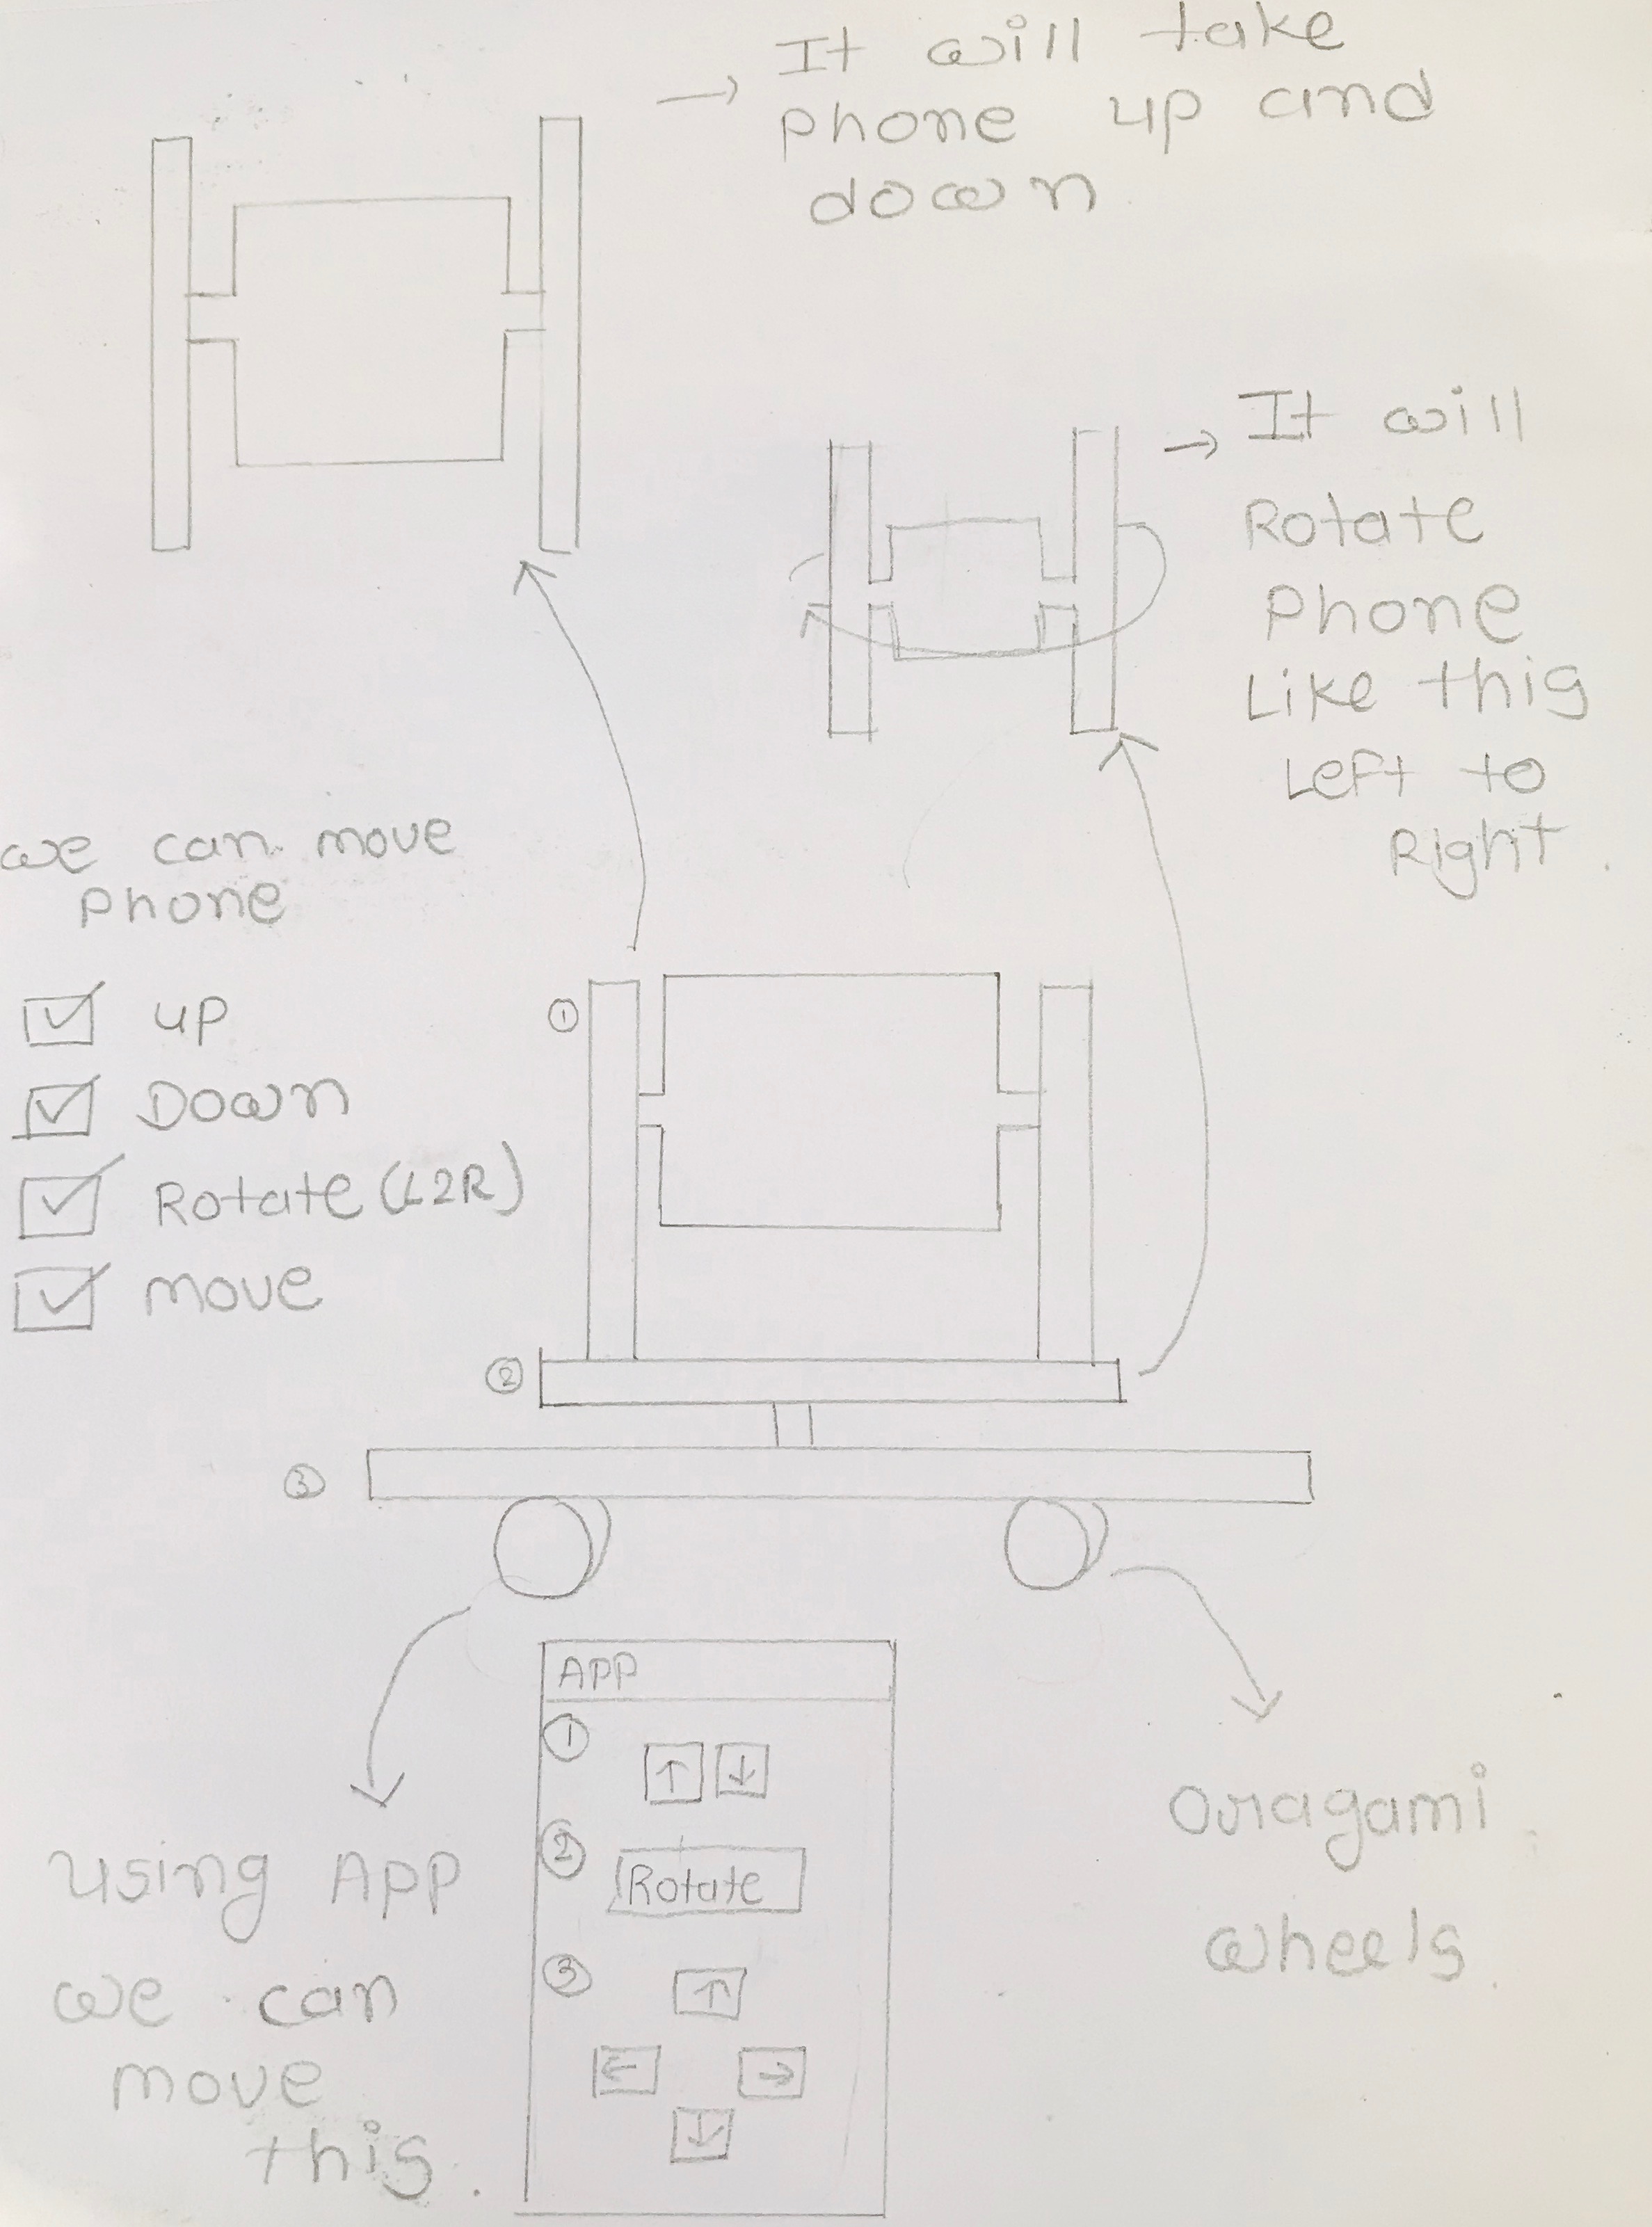 → It will take
phone up and
down
→ It will
Rotate
Phone
Like this
Left to
Right.
we can move
phone
☑ up
☑ Down
☑ Rotate (L2R)
☑ move
①
②
③
APP
①
↑ ↓
②
Rotate
③
↑
← →
↓
using App
we can
move
this.
Oragami
wheels.